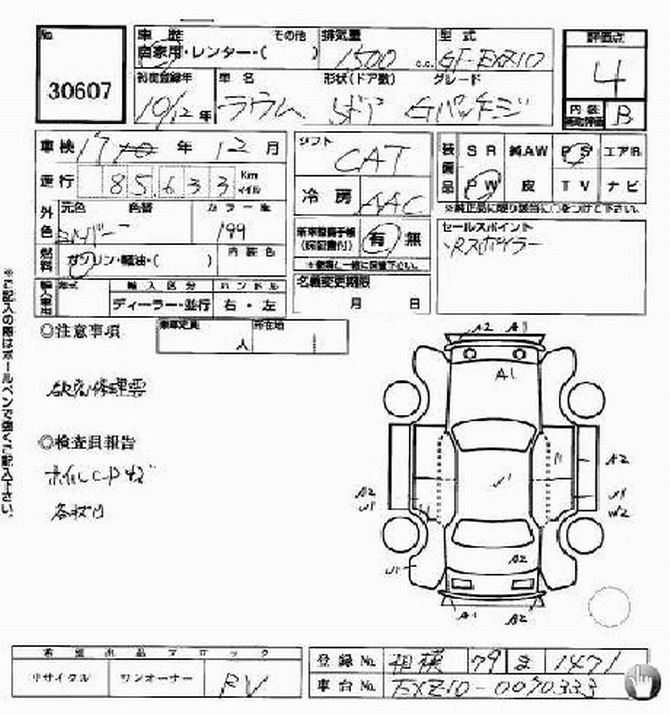 No. 30607
車歴 自家用・レンター・( ) その他
排気量 1500 c.c.
型式 GF-EXZ10
評価点 4
内装 補助評価 B
初度登録年 10/12年
車名 ラウム
形状(ドア数) 5ドア
グレード Gパッケージ
車検 17年 12月
走行 85,633 Km マイル
外色 元色 シルバー 色替 カラーNo. 199
燃料 ガソリン・軽油・( ) 内装色
輸入車用 年式 輸入区分 ディーラー・並行 ハンドル 右・左
シフト CAT
冷房 AAC
新車整備手帳 (保証書付) 有 無
※後車と一緒に保管下さい。
名義変更期限 月 日
装備品 SR 純AW PS エアB
PW 皮 TV ナビ
※純正品に限り該当に○をつけて下さい。
セールスポイント
・Rスポイラー
◎注意事項
乗車定員 人 所在地
◎検査員報告
ホイルCapキズ
※ご記入の際はボールペンで強くご記入下さい。
A2 A1
A1
A2
W1
A2
W1
W1
W2
A2
W1
A1 A2
希望出品ブロック
リサイクル ワンオーナー RV
登録No. 相模 79 ま 1471
車台No. EXZ10-0070333